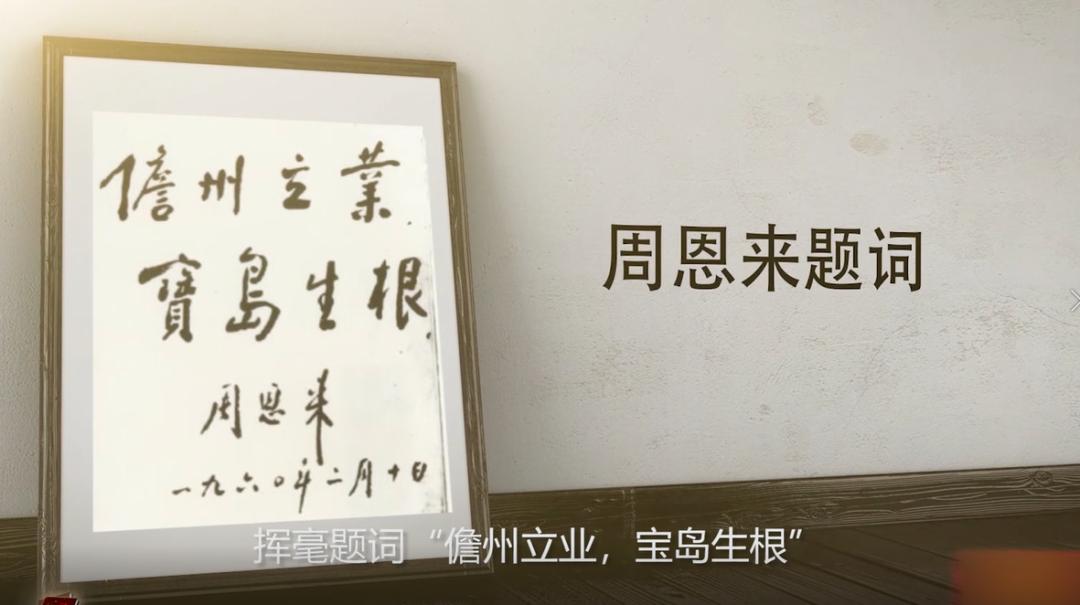 儋州立業
寶島生根
周恩来
一九六〇年二月十日
周恩来题词
挥毫题词“儋州立业，宝岛生根”